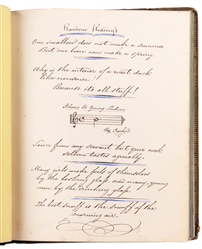 Random Readings
One swallow does not make a summer
But one frost can make a spring
Why is the interior of a roast duck
like nonsense?
Because its all stuff!
Advice to Young Ladies
By
Learn from any servant but your
seldom tastes equally.
Many girls make fools of themselves
by the looking glass and many young
men by the drinking glass.
The best snuff is the snuff of the
morning air.